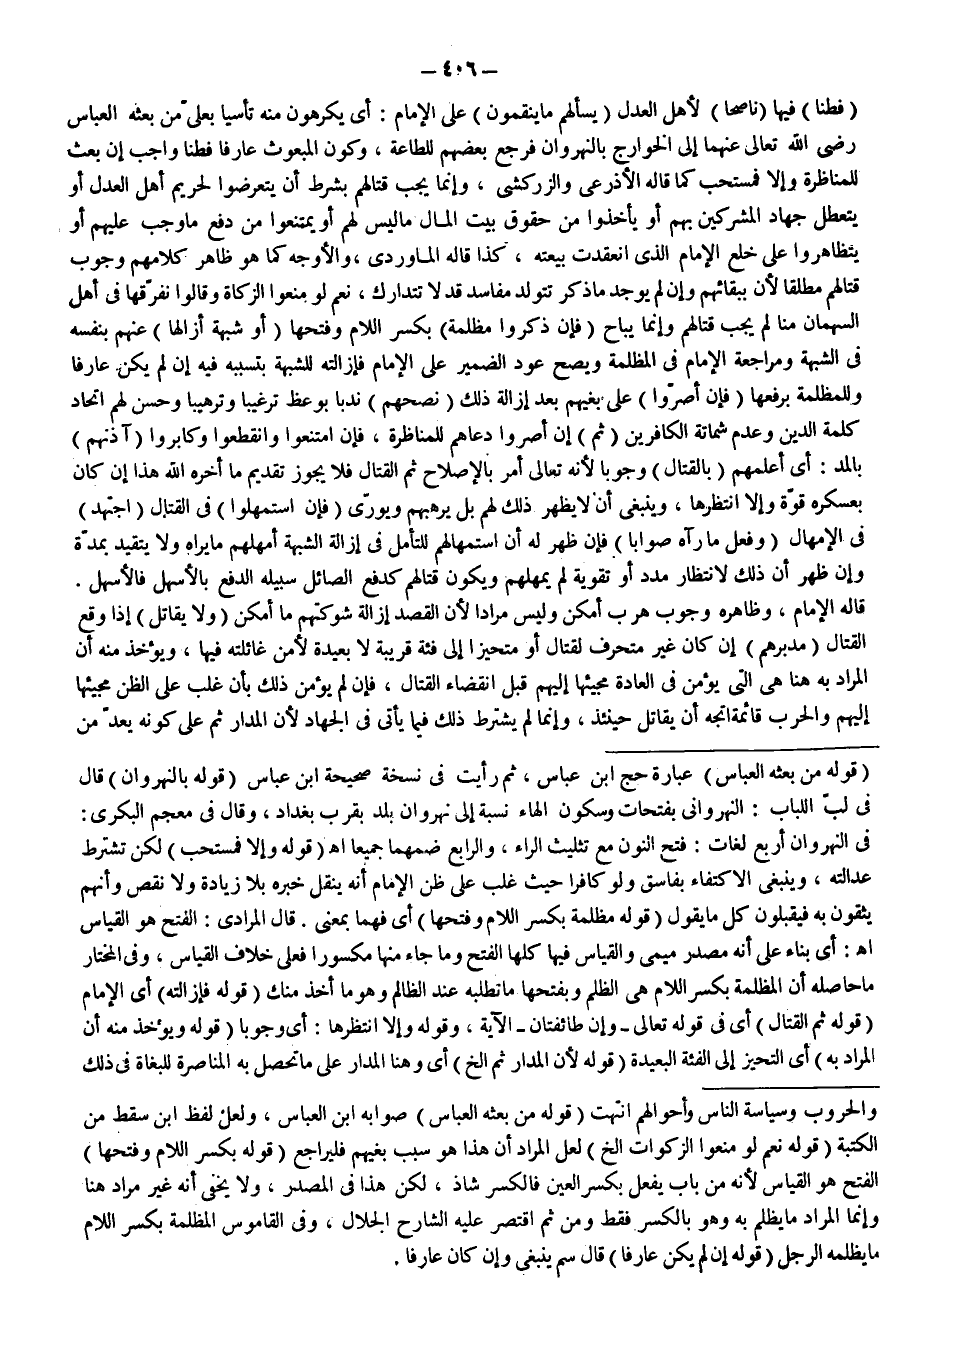 – ٤٠٦ –
( فطنا ) فيها ( ناصحا ) لأهل العدل ( يسألهم ماينقمون ) على الإمام : أى يكرهون منه تأسيا بعلىّ من بعثه العباس
رضى الله تعالى عنهما إلى الخوارج بالنهروان فرجع بعضهم للطاعة ، وكون المبعوث عارفا فطنا واجب إن بعث
للمناظرة وإلا فمستحب كما قاله الأذرعى والزركشى ، وإنما يجب قتالهم بشرط أن يتعرضوا لحريم أهل العدل أو
يتعطل جهاد المشركين بهم أو يأخذوا من حقوق بيت المـال ماليس لهم أو يمتنعوا من دفع ماوجب عليهم أو
يتظاهروا على خلع الإمام الذى انعقدت بيعته ، كذا قاله المـاوردى ، والأوجه كما هو ظاهر كلامهم وجوب
قتالهم مطلقا لأن ببقائهم وإن لم يوجد ماذكر تتولد مفاسد قد لا تتدارك ، نعم لو منعوا الزكاة وقالوا نفرّقها فى أهل
السهمان منا لم يجب قتالهم وإنما يباح ( فإن ذكروا مظلمة) بكسر اللام وفتحها ( أو شبهة أزالها ) عنهم بنفسه
فى الشبهة ومراجعة الإمام فى المظلمة ويصح عود الضمير على الإمام فإزالته للشبهة بتسببه فيه إن لم يكن عارفا
وللمظلمة برفعها ( فإن أصرّوا ) على بغيهم بعد إزالة ذلك ( نصحهم ) ندبا بوعظ ترغيبا وترهيبا وحسن لهم اتحاد
كلمة الدين وعدم شماتة الكافرين ( ثم ) إن أصروا دعاهم للمناظرة ، فإن امتنعوا وانقطعوا وكابروا ( آذنهم )
بالمد : أى أعلمهم ( بالقتال ) وجوبا لأنه تعالى أمر بالإصلاح ثم القتال فلا يجوز تقديم ما أخره الله هذا إن كان
بعسكره قوّة وإلا انتظرها ، وينبغى أن لايظهر ذلك لهم بل يرهبهم ويورّى ( فإن استمهلوا ) فى القتال ( اجتهد )
فى الإمهال ( وفعل ما رآه صوابا ) فإن ظهر له أن استمهالهم للتأمل فى إزالة الشبهة أمهلهم مايراه ولا يتقيد بمدّة
وإن ظهر أن ذلك لانتظار مدد أو تقوية لم يمهلهم ويكون قتالهم كدفع الصائل سبيله الدفع بالأسهل فالأسهل .
قاله الإمام ، وظاهره وجوب هرب أمكن وليس مرادا لأن القصد إزالة شوكتهم ما أمكن ( ولا يقاتل ) إذا وقع
القتال ( مدبرهم ) إن كان غير متحرف لقتال أو متحيزا إلى فئة قريبة لا بعيدة لأمن غائلته فيها ، ويؤخذ منه أن
المراد به هنا هى التى يؤمن فى العادة مجيئها إليهم قبل انقضاء القتال ، فإن لم يؤمن ذلك بأن غلب على الظن مجيئها
إليهم والحرب قائمة اتجه أن يقاتل حينئذ ، وإنما لم يشترط ذلك فيما يأتى فى الجهاد لأن المدار ثم على كونه يعدّ من
( قوله من بعثه العباس ) عبارة حج ابن عباس ، ثم رأيت فى نسخة صحيحة ابن عباس ( قوله بالنهروان ) قال
فى لبّ اللباب : النهروانى بفتحات وسكون الهاء نسبة إلى نهروان بلد بقرب بغداد ، وقال فى معجم البكرى :
فى النهروان أربع لغات : فتح النون مع تثليث الراء ، والرابع ضمهما جميعا اه ( قوله وإلا فمستحب ) لكن تشترط
عدالته ، وينبغى الاكتفاء بفاسق ولو كافرا حيث غلب على ظن الإمام أنه ينقل خبره بلا زيادة ولا نقص وأنهم
يثقون به فيقبلون كل مايقول ( قوله مظلمة بكسر اللام وفتحها ) أى فهما بمعنى . قال المرادى : الفتح هو القياس
اه : أى بناء على أنه مصدر ميمى والقياس فيها كلها الفتح وما جاء منها مكسورا فعلى خلاف القياس ، وفى المختار
ماحاصله أن المظلمة بكسر اللام هى الظلم وبفتحها ماتطلبه عند الظالم وهو ما أخذ منك ( قوله فإزالته ) أى الإمام
( قوله ثم القتال ) أى فى قوله تعالى ـ وإن طائفتان ـ الآية ، وقوله وإلا انتظرها : أى وجوبا ( قوله ويؤخذ منه أن
المراد به ) أى التحيز إلى الفئة البعيدة ( قوله لأن المدار ثم الخ ) أى وهنا المدار على ماتحصل به المناصرة للبغاة فى ذلك
والحروب وسياسة الناس وأحوالهم انتهت ( قوله من بعثه العباس ) صوابه ابن العباس ، ولعل لفظ ابن سقط من
الكتبة ( قوله نعم لو منعوا الزكوات الخ ) لعل المراد أن هذا هو سبب بغيهم فليراجع ( قوله بكسر اللام وفتحها )
الفتح هو القياس لأنه من باب يفعل بكسر العين فالكسر شاذ ، لكن هذا فى المصدر ، ولا يخفى أنه غير مراد هنا
وإنما المراد مايظلم به وهو بالكسر فقط ومن ثم اقتصر عليه الشارح الجلال ، وفى القاموس المظلمة بكسر اللام
مايظلمه الرجل ( قوله إن لم يكن عارفا ) قال سم ينبغى وإن كان عارفا .